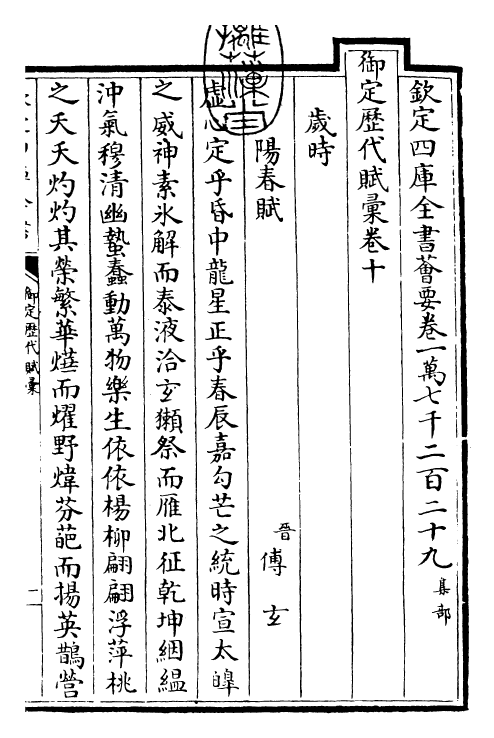 欽定四庫全書薈要卷一萬七千二百二十九 集部
御定歷代賦彙卷十
歲時
陽春賦
晉 傅玄
虛心定乎昏中龍星正乎春辰嘉勾芒之統時宣太皞
之威神素冰解而泰液洽玄獺祭而雁北征乾坤絪縕
沖氣穆清幽蟄蠢動萬物樂生依依楊柳翩翩浮萍桃
之夭夭灼灼其榮繁華爗而燿野煒芬葩而揚英鵲營
御定歷代賦彙